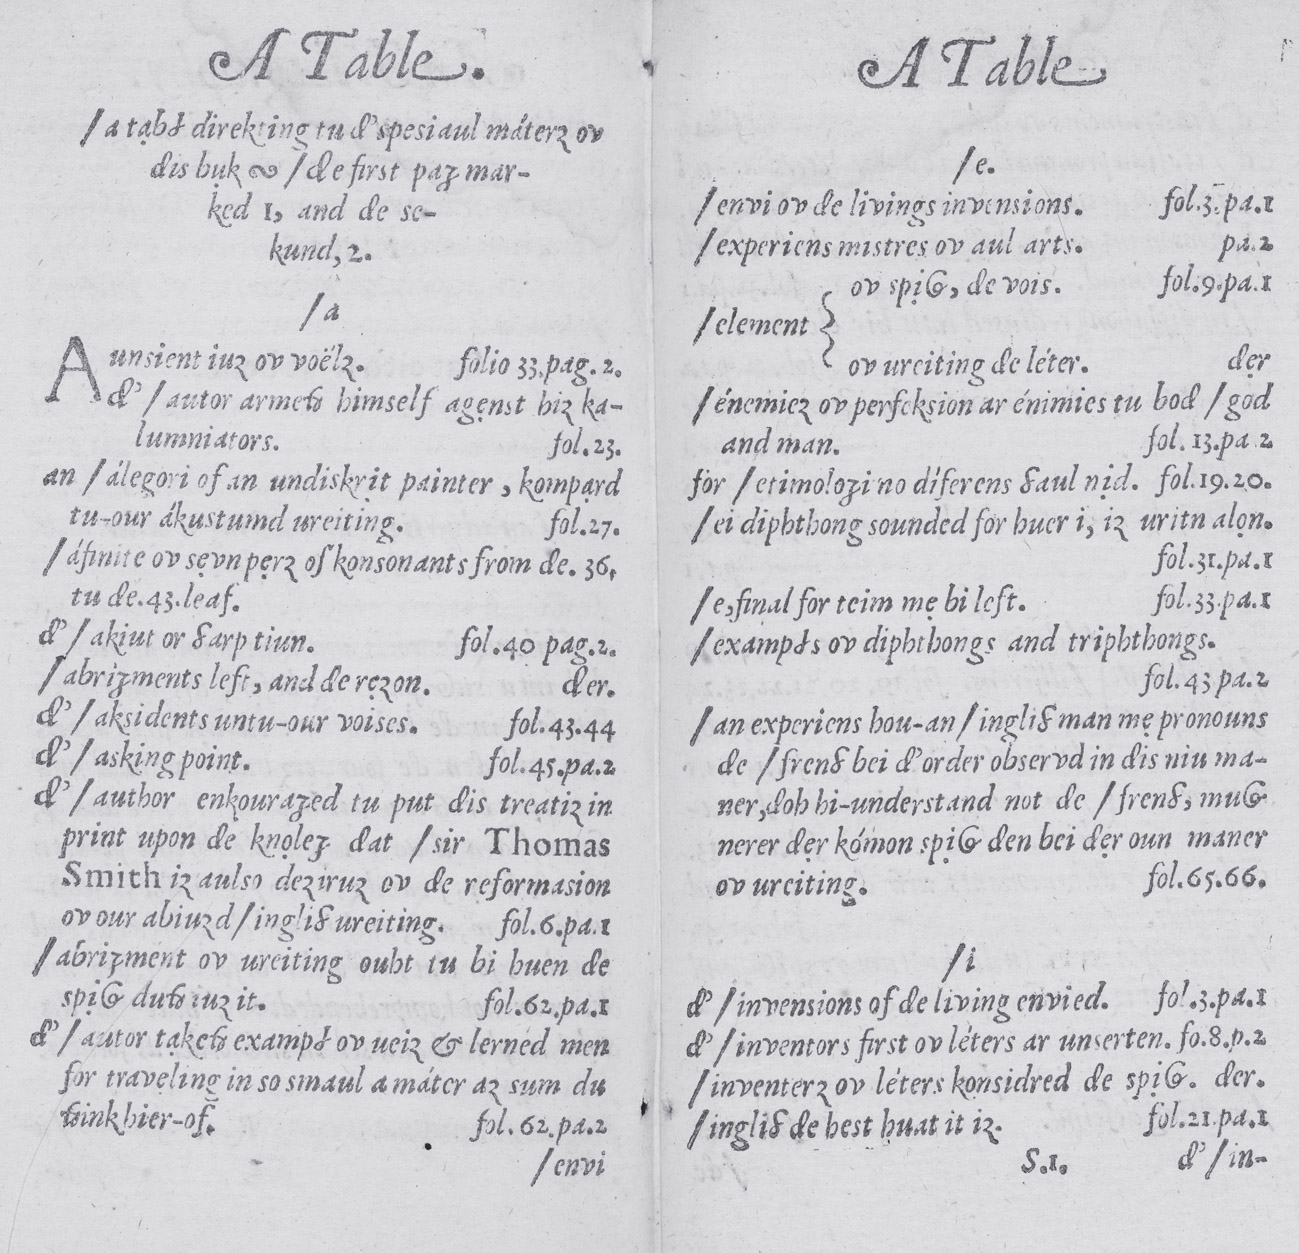 A Table.
/a tạbł direkting tu đ'spesiaul máterz ov
đis bụk ∾ /đe first paʒ mar-
ked 1, and đe se-
kund, 2.
/a
Aunsient iuz ov voëlz. folio 33.pag.2.
đ'/autor armeþ himself agẹnst hiz ka-
lumniators. fol.23.
an /álegori of an undiskrịt painter, kompạrd
tu-our ákustumd ureiting. fol.27.
/áfinite ov sẹvn pẹrz of konsonants from đe. 36,
tu đe.43.leaf.
đ'/akiut or ȣarp tiun. fol.40 pag.2.
/abriʒments left, and đe rẹzon. đer.
đ'/aksidents untu-our voises. fol.43.44
đ'/asking point. fol.45.pa.2
đ'/author enkouraʒed tu put đis treatiz in
print upon đe knọleʒ đat /sir Thomas
Smith iz aulso deziruz ov đe reformasion
ov our abiuzd/ingliȣ ureiting. fol.6.pa.1
/abriʒment ov ureiting ouht tu bi huen đe
spịɢ duþ iuz it. fol.62.pa.1
đ'/autor tạkeþ exampł ov ueiz & lerned men
for traveling in so smaul a máter az sum du
þink hier-of. fol.62.pa.2
/envi
A Table
/e.
/envi ov đe livings invensions. fol.3.pa.1
/experiens mistres ov aul arts. pa.2
ov spịɢ, đe vois. fol.9.pa.1
/element {
ov ureiting đe léter. đẹr
/énemiez ov perfeksion ar énimies tu bođ /god
and man. fol.13.pa 2
for /etimoloʒi no díferens ȣaul nịd. fol.19.20.
/ei diphthong sounded for huer i, iz uritn alọn.
fol.31.pa.1
/e,final for teim mẹ bi left. fol.33.pa.1
/exampłs ov diphthongs and triphthongs.
fol.43 pa.2
/an experiens hou-an/ingliȣ man mẹ pronouns
đe /frenȣ bei đ'order observd in đis niu ma-
ner,đoh hi-understand not đe /frenȣ, muɢ
nerer đẹr kómon spịɢ đen bei đẹr oun maner
ov ureiting. fol.65.66.
/i
đ'/invensions of đe living envied. fol.3.pa.1
đ'/inventors first ov léters ar unserten. fo.8.p.2
/inventerz ov léters konsidred đe spịɢ. đer.
/ingliȣ đe best huat it iz. fol.21.pa.1
S.1. đ'/in-